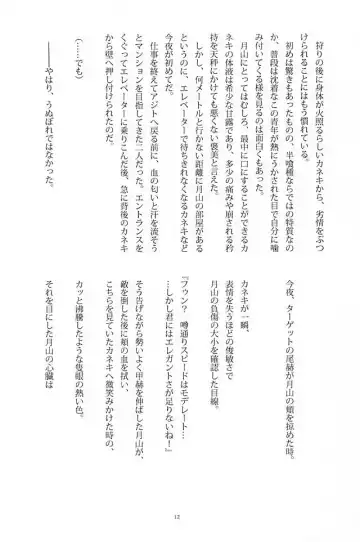 狩りの後に身体が火照るらしいカネキから、劣情をぶつ
けられることにはもう慣れている。
初めは驚きもあったものの、半喰種ならではの特質なの
か、普段は沈着なこの青年が熱にうかされた目で自分に噛
み付いてくる様を見るのは面白くもあった。
月山にとってはむしろ、最中に口にすることができるカ
ネキの体液は希少な甘露であり、多少の痛みや崩される矜
持を天秤にかけても悪くない褒美と言えた。
しかし、何メートルと行かない距離に月山の部屋がある
というのに、エレベーターで待ちきれなくなるカネキなど
今夜が初めてだ。
仕事を終えてアジトへ戻る前に、血の匂いと汗を流そう
とマンションを目指してきた二人だった。エントランスを
くぐってエレベーターに乗りこんだ後、急に背後のカネキ
から壁へ押し付けられたのだ。
(……でも)
――やはり、うぬぼれではなかった。
今夜、ターゲットの尾赫が月山の頬を掠めた時。
カネキが一瞬、
表情を失うほどの俊敏さで
月山の負傷の大小を確認した目線。
「フゥン？　噂通りスピードはモデレート…
…しかし君にはエレガントさが足りないね！」
そう告げながら勢いよく甲赫を伸ばした月山が、
敵を倒した後に頬の血を拭い、
こちらを見ていたカネキへ微笑みかけた時の、
カッと沸騰したような隻眼の熱い色。
それを目にした月山の心臓は
12